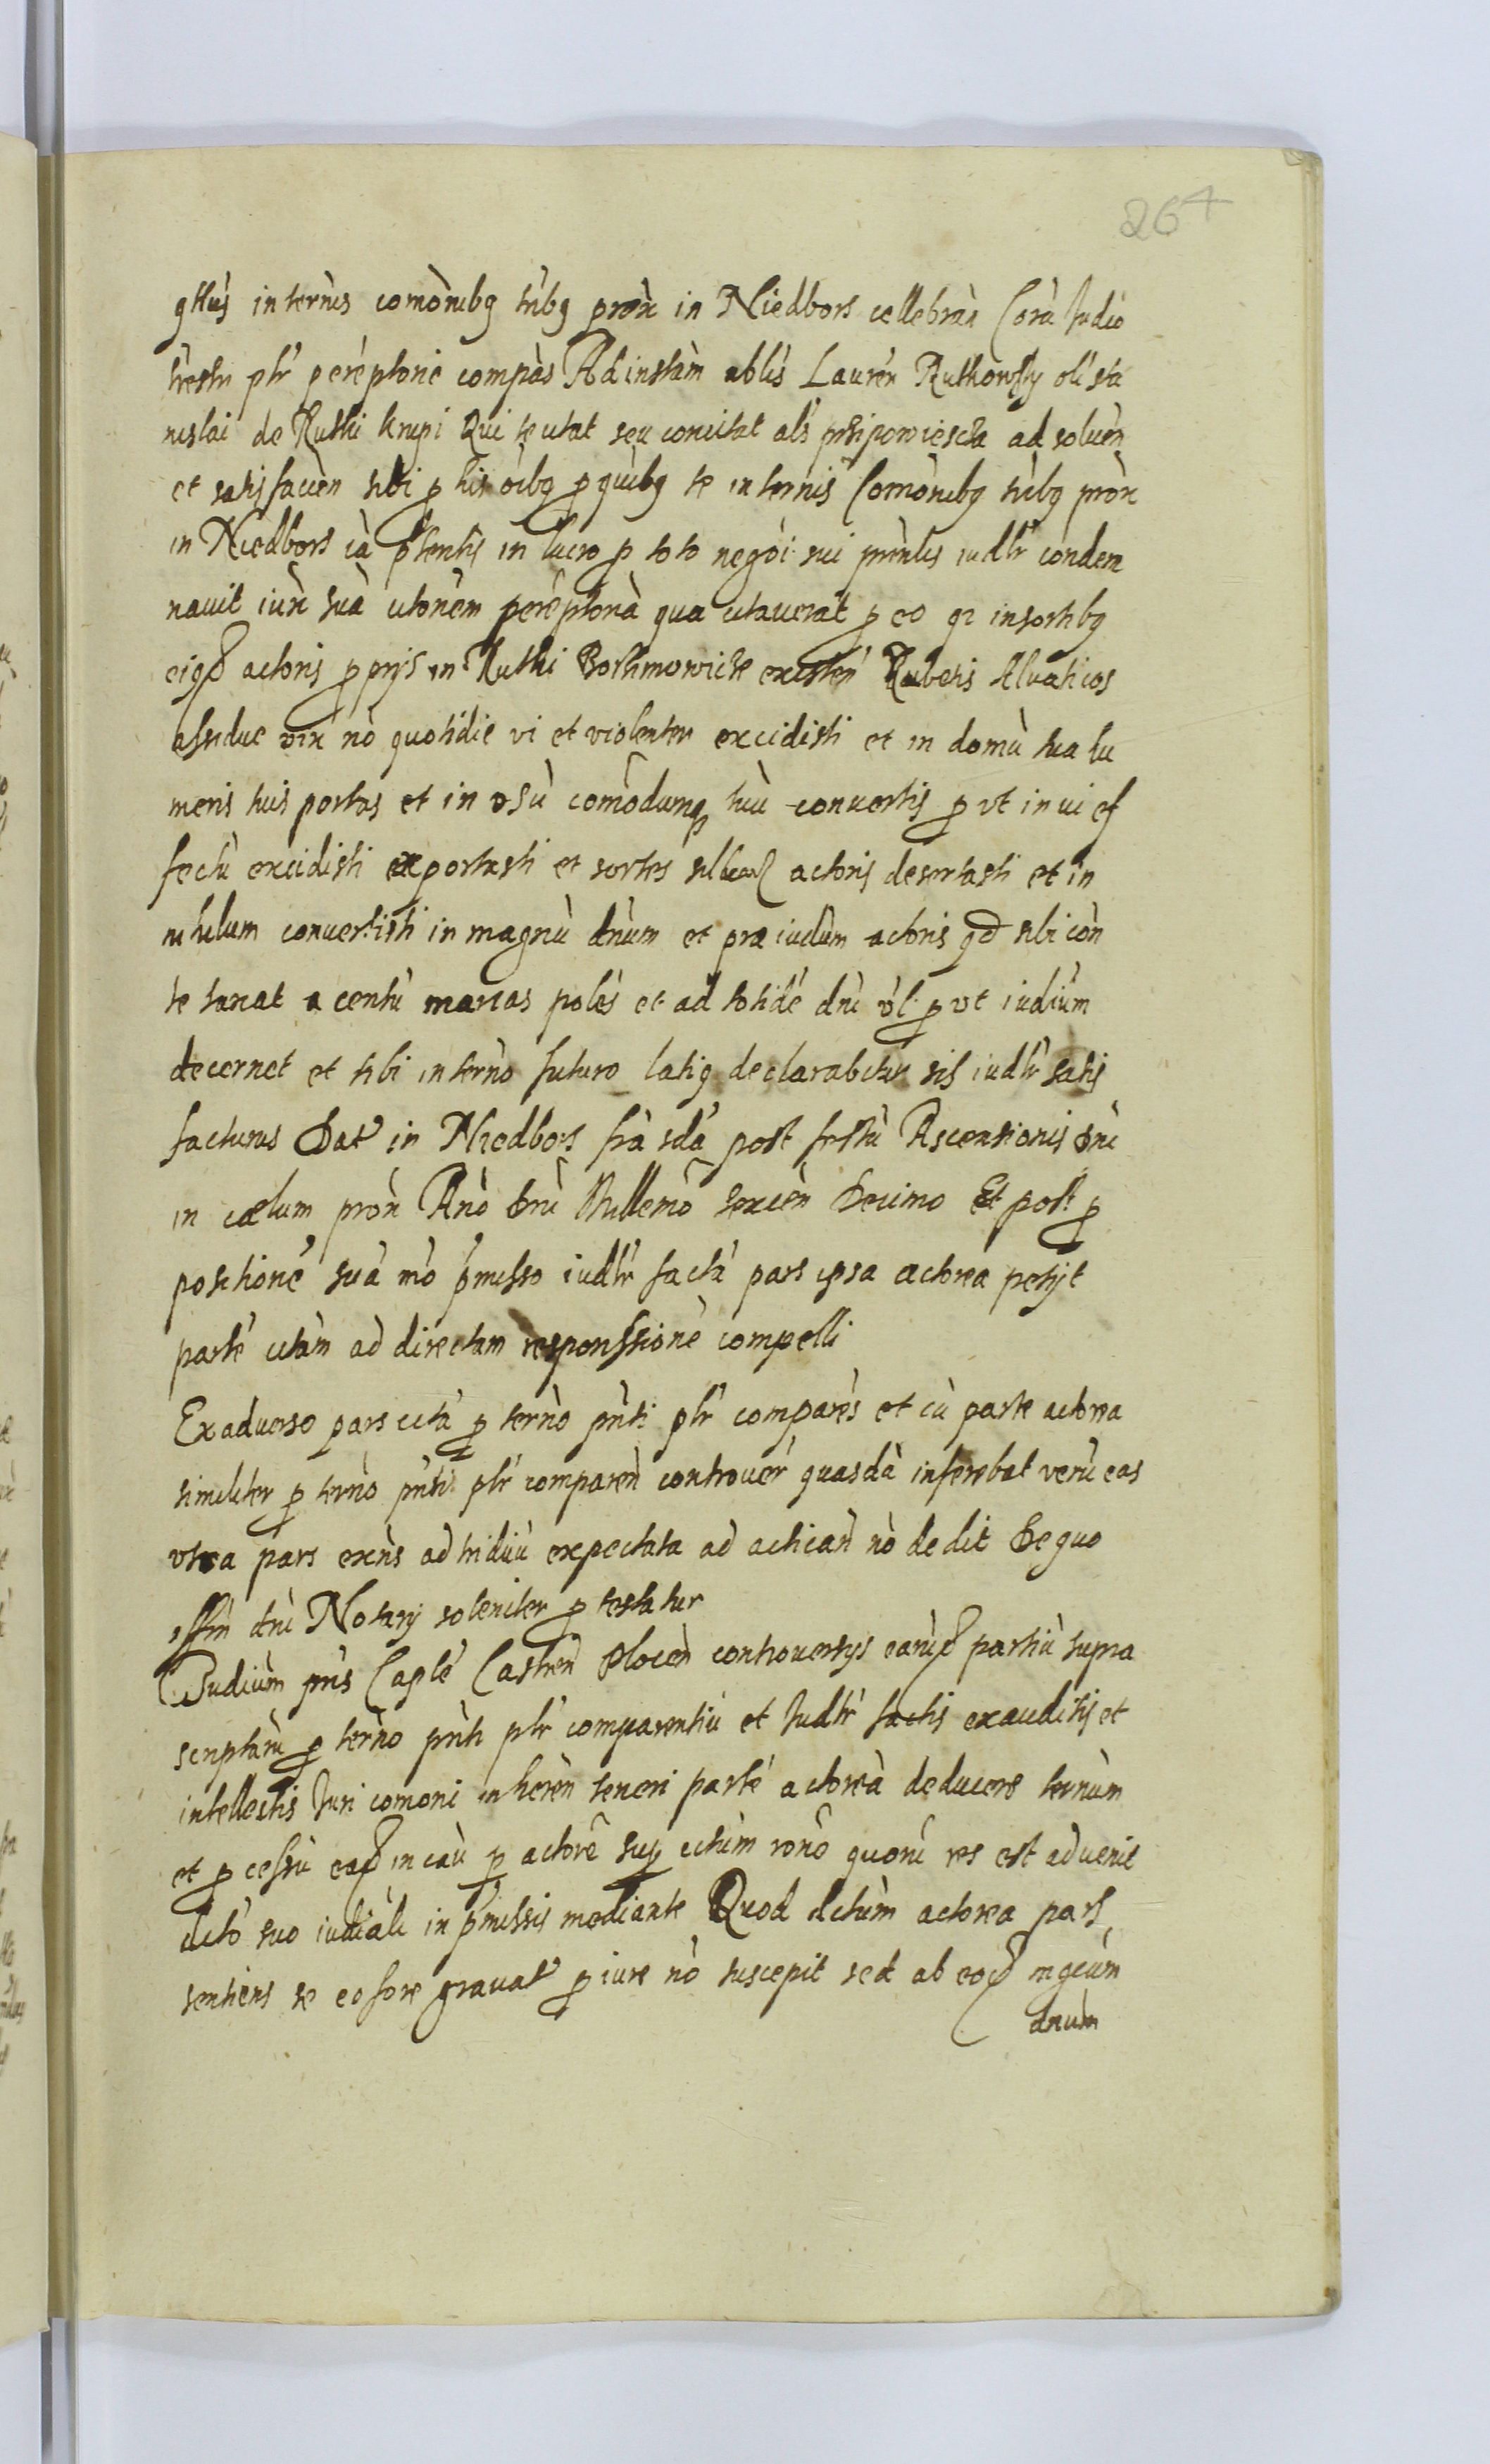 264
qttus in ternis comonibq tribq prox in Niedbors cellebran Cora Judio
tresti plr pereptorie compas Ad instam nblis Lauren Rutkowsky oli sta
nislai de Rutki krupi Qui te citat seu concitat als przipowiescza ad soluen
et satisfacien sibi p his oibq p quibq te in ternis Comonibq tribq prox
in Niedbors ia ptentis in lucro p toto negoi sui prinlis iudlr condem
nauit iux sua citonem pereptoria qua citauerat p eo qz in sortibq
eiqd actoris pprijs in Rutki Bortnowicze existen Rubetis siluaticos
assidue vix no quotidie vi et violenter excidisti et in domu tua hu
meris tuis portas et in vsu comodumq tuu conuertis p vt in ui ef
fectu excidisti exportasti et sortes silluar actoris desertasti et in
nihilum conuertisti in magnu dnum et præiudium actoris qd sibi con
te tanat a centu marcas poles et ad totide dni vl p vt iudium
decernet et tibi in terno futuro latiq declarabitur sis iudlr satis
facturus Dat in Niedbors fra sda post festu Ascensionis dni
in cælum prox Ano dni Millemo sexcen Decimo Et post p
positione sua mo pmisso iudlr facta pars ipsa actorea petijt
parte citam ad directam responssione compelli
Ex aduerso pars cita p terno pnti plr compares et cu parte actorea
similiter p terno pnti plr comparen controuer quasda inferebat veru eas
vtra pars exns ad triduu expectata ad actican no dedit De quo
offin dni Notarij soleniter p testatur
Judium pns Caple Castren Plocen controuersys earud partiu supra
scriptaru p terno pnti plr comparentiu et Judlr factis exauditis et
intellectis Juri comoni inheren teneri parte actorea deducere ternum
et p cessu eaqd in cau p actore sup citum rono quoru res est aduenit
dcto suo iudiali in pmissis mediante Quod dctum actorea pars
sentiens se eo fore grauat p iure no suscepit sed ab eod mgcum
dnum